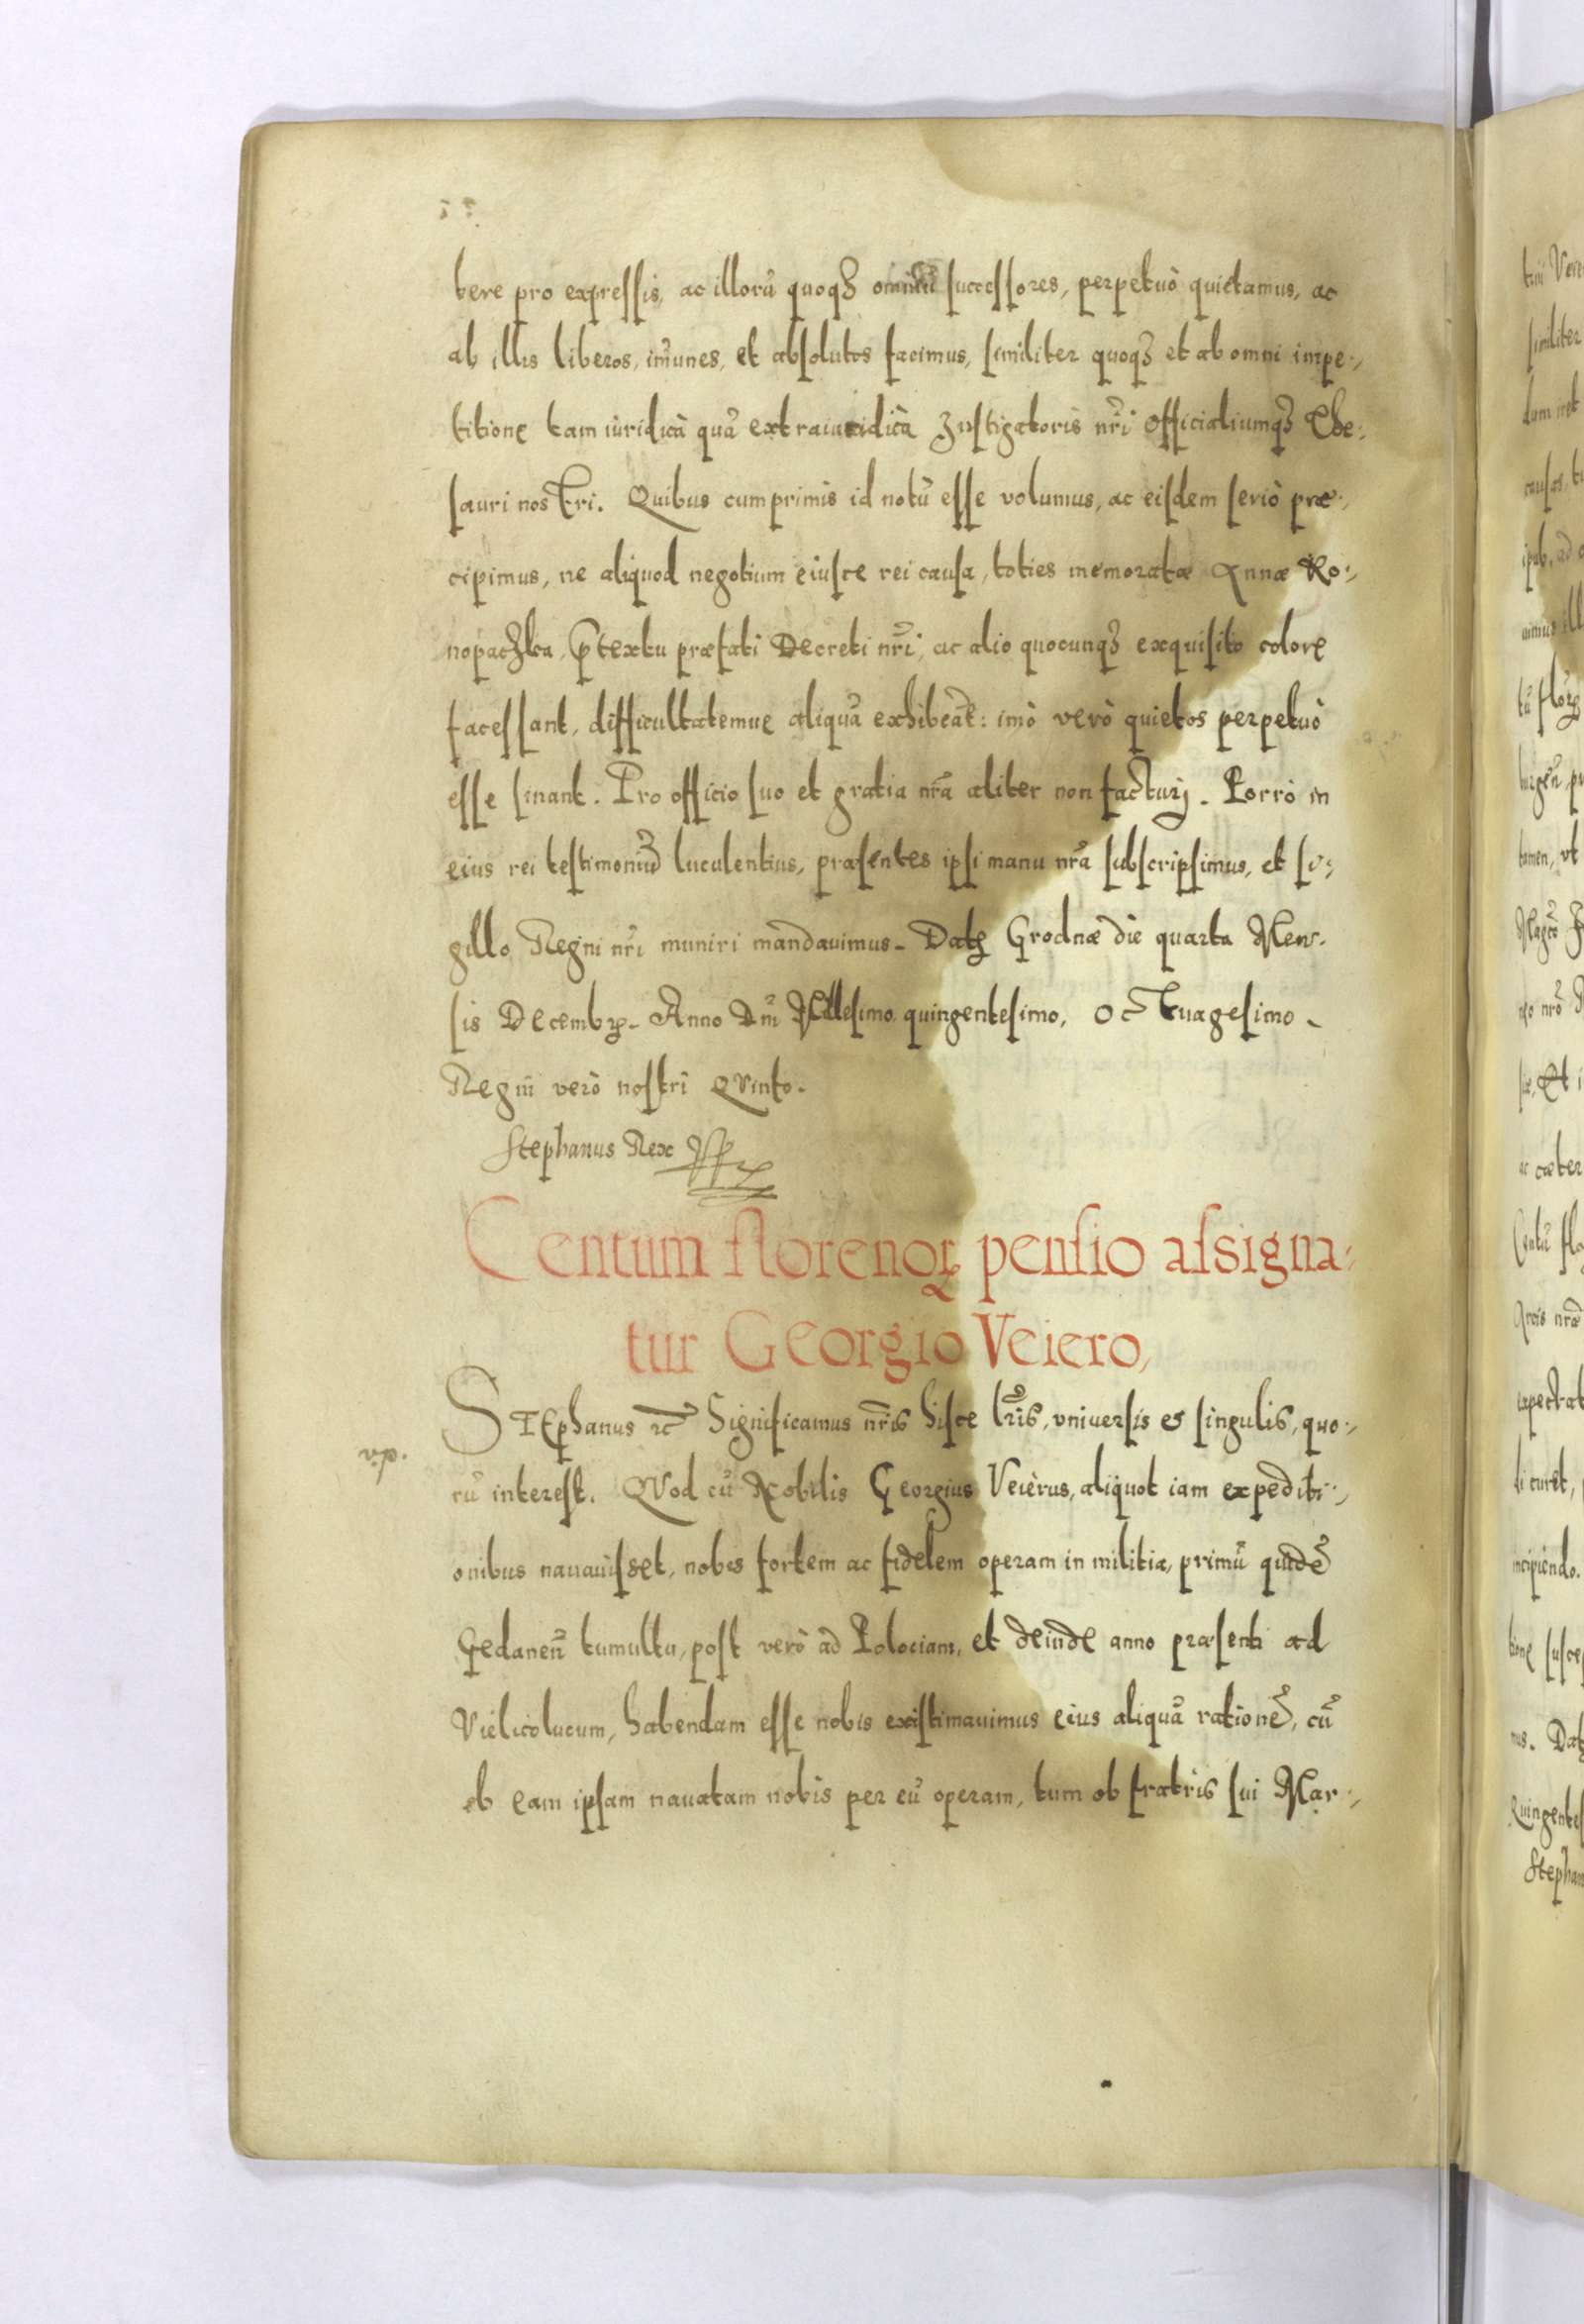 bere pro expressis, ac illorũ quoqȝ omniũ successores, perpetuò quietamus, ac
ab illis liberos, im̃unes, et absolutos facimus, similiter quoqȝ et ab omni impe-,
titione tam iuridicà quã extraiuridicà Instigatoris nrĩ Officialiumqȝ The-,
sauri nostri. Quibus cum primis id notũ esse volumus, ac eisdem seriò præ-,
cipimus, ne aliquod negotium eiusce rei causa, toties memoratæ Annæ Ko-,
nopaczka, p̃textu præfati Decreti nrĩ, ac alio quocunqȝ exquisito colore
facessant, difficultatemue aliquã exhibeãt: imò verò quietos perpetuò
esse sinant. Pro officio suo et gratia nrã aliter non facturj. Porrò in
eius rei testimoniũ luculentius, præsentes ipsi manu nrã subscripsimus, et si-,
gillo Regni nrĩ muniri mandauimus. Datȝ Grodnæ die quarta Men-
sis Decembꝝ. Anno Dnĩ Millesimo quingentesimo, Octuagesimo.
Regni verò nostri Qvinto.
Stephanus Rex
Centum florenoꝝ pensio assigna-
tur Georgio Veiero,
STEphanus ꝛc̃ Significamus nrĩs hisce lrĩs, vniuersis et singulis, quo-,
rũ interest. QVod cũ Nobilis Georgius Veierus, aliquot iam expediti-,
onibus nauauisset, nobis fortem ac fidelem operam in militia, primũ quidẽ
Gedaneñ tumultu, post verò ad Polociam, et deinde anno præsenti ad
Vielicolucum, habendam esse nobis existimauimus eius aliquã rationẽ, cũ
ob eam ipsam nauatam nobis per eũ operam, tum ob fratris sui Mar-,